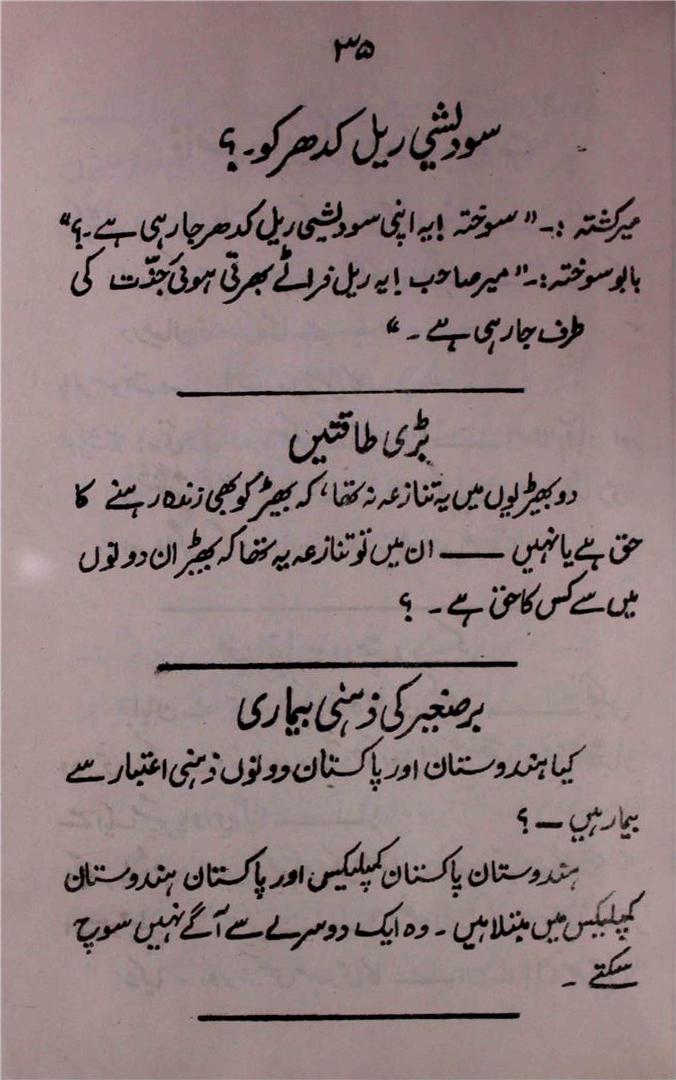 ۳۵
سودیشی ریل کدھر کو۔؟
میرگشتہ :۔ "سوختہ! یہ اپنی سودیشی ریل کدھر جارہی ہے۔؟"
بابو سوختہ :۔ "میر صاحب! یہ ریل فراٹے بھرتی ہوئی جدّت کی
طرف جارہی ہے۔"
بڑی طاقتیں
دو بھیڑیوں میں یہ تنازعہ نہ تھا، کہ بھیڑ کو بھی زندہ رہنے کا
حق ہے یا نہیں —— ان میں تو تنازعہ یہ تھا کہ بھیڑ ان دونوں
میں سے کس کا حق ہے۔ ؟
برصغیر کی ذہنی بیماری
کیا ہندوستان اور پاکستان دونوں ذہنی اعتبار سے
بیمار ہیں — ؟
ہندوستان پاکستان کمپلیکس اور پاکستان ہندوستان
کمپلیکس میں مبتلا ہیں۔ وہ ایک دوسرے سے آگے نہیں سوچ
سکتے۔